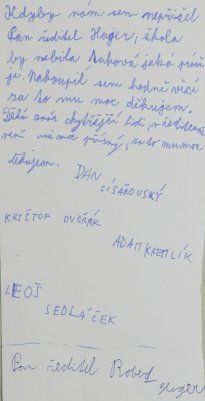 Kdyby nám sem nepřišel
Pan ředitel Hager, škola
by nebyla taková jako právě
je. Nakoupil sem hodně věcí
za to mu moc děkujem.
Dělá z nás chytřejší lidi, předitem
není mimoc přísný, za to mu moc
děkujem.
DAN
CÍSAŘOVSKÝ
KRYŠTOF DVOŘÁK
ADAM KREMLÍK
LEOŠ
SEDLÁČEK
Pan ředitel Robert
Hager